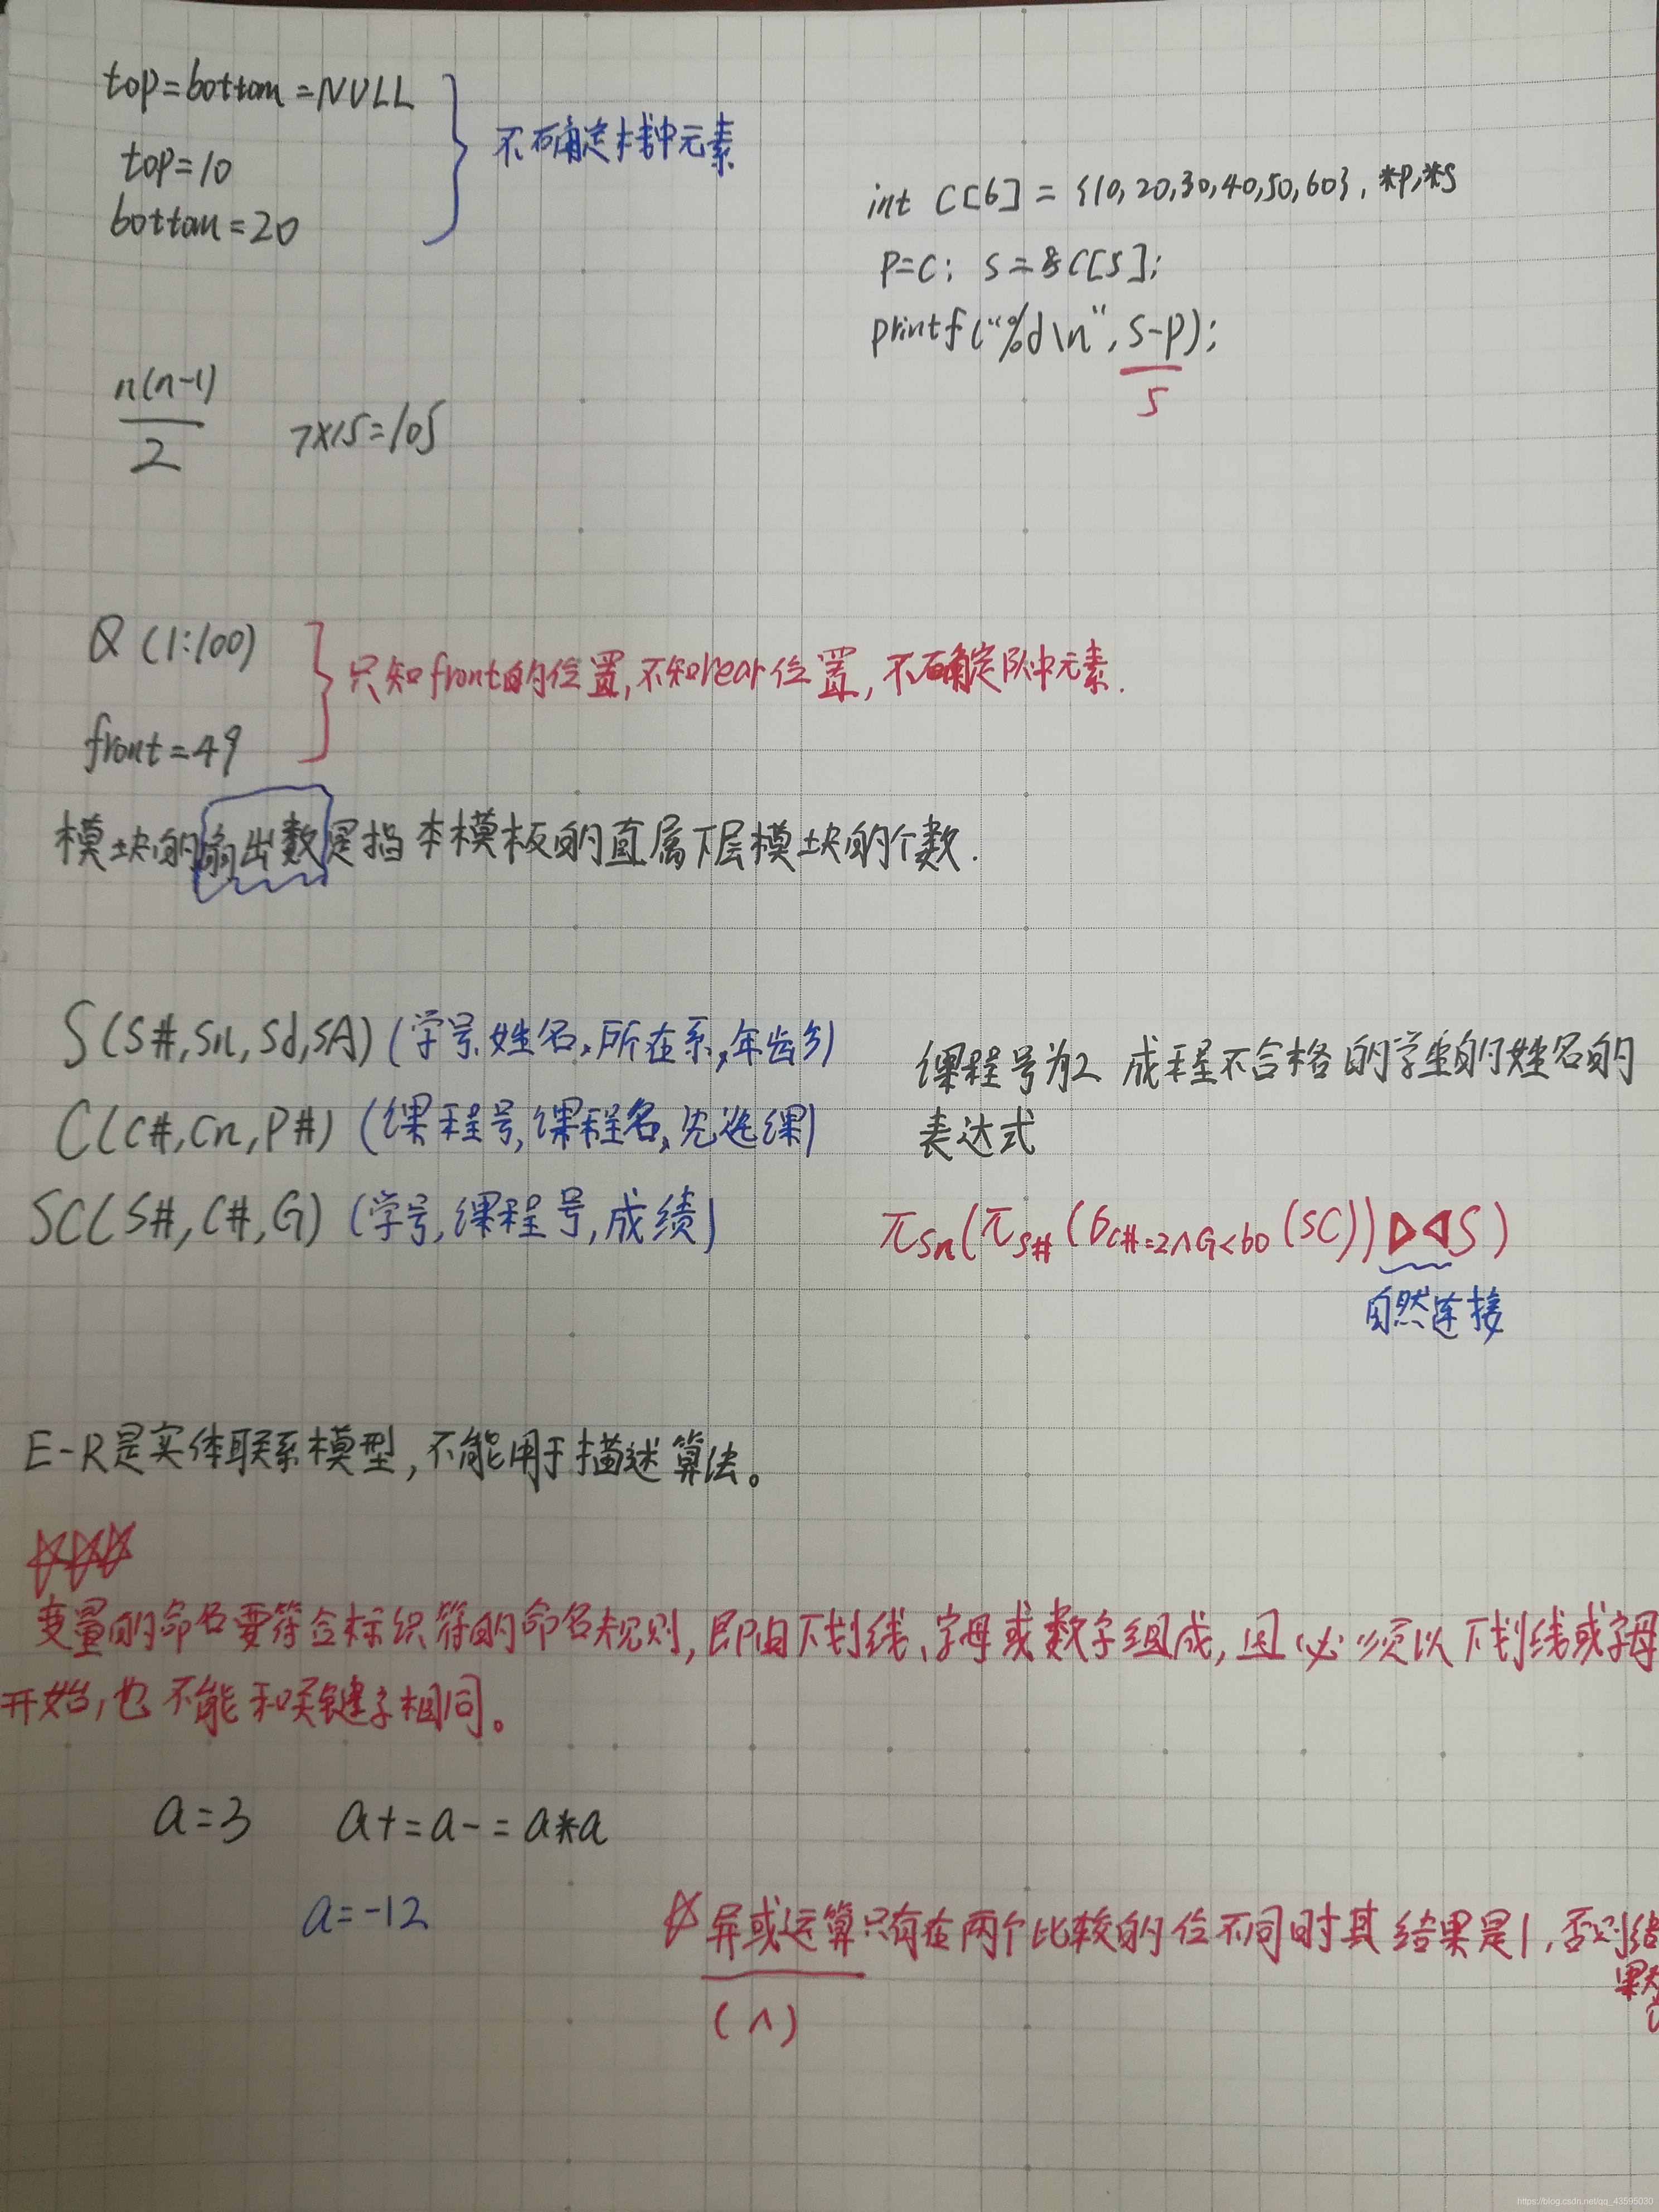 top=bottom=NULL
top=10
bottom=20
不确定栈中元素
int C[6] = {10,20,30,40,50,60}, *P,*S
P=C; S=&C[5];
printf("%d\n", S-P);
5
n(n-1)
2
7×15=105
Q (1:100)
front=49
只知front的位置,不知rear位置,不确定队中元素.
模块的扇出数是指本模板的直属下层模块的个数.
S(S#,Sn,Sd,SA) (学号,姓名,所在系,年龄)
C(C#,Cn,P#) (课程号,课程名,先选课)
SC(S#,C#,G) (学号,课程号,成绩)
课程号为2 成程不合格的学生的姓名的
表达式
πSn(πS#(σC#=2∧G<60(SC))⋈S)
自然连接
E-R是实体联系模型,不能用于描述算法。
☆☆☆
变量的命名要符合标识符的命名规则,即由下划线、字母或数字组成,且必须以下划线或字母
开始,也不能和关键字相同。
a=3 a+=a-=a*a
a=-12
☆异或运算只有在两个比较的位不同时其结果是1,否则结
果为
0
(∧)
https://blog.csdn.net/qq_43595030